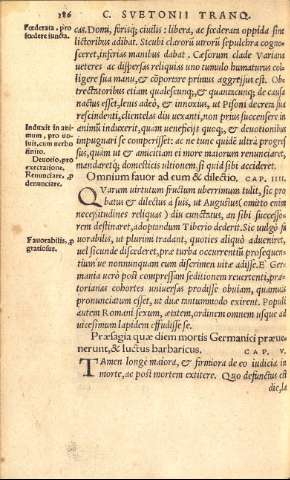 186 C. SVETONII TRANQ.
Fœderata, pro
fœdere iuncta.
cas. Domi, forisq; ciuilis: libera, ac fœderata oppida sine
lictoribus adibat. Sicubi clarorū uirorū sepulchra cogno-
sceret, inferias manibus dabat. Cæsorum clade Variana
ueteres ac dispersas reliquias uno tumulo humaturus col-
ligere sua manu, & cōportare primus aggressus est. Ob-
trectatoribus etiam qualescunq;, & quantacunq; de causa
nactus esset, lenis adeò, & innoxius, ut Pisoni decreta sua
rescindenti, clientelas diu uexanti, non prius succensere in
Induxit in ani-
mum, pro uo-
luit, cum uerbo
finito.
animū induxerit, quàm ueneficijs quoq;, & deuotionibus
impugnari se comperisset: ac ne tunc quidē ultrà progres
sus, quàm ut & amicitiam ei more maiorum renunciaret,
Deuotio, pro
execratione.
Renunciare, p
denunciare.
mandaretq; domesticis ultionem, si quid sibi accideret.
Omnium fauor ad eum & dilectio. CAP. IIII.
QVarum uirtutum fructum uberrimum tulit, sic pro
batus & dilectus à suis, ut Augustus (omitto enim
necessitudines reliquas) diu cunctatus, an sibi successo-
rem destinaret, adoptandum Tiberio dederit. Sic uulgò fa
Fauorabilis, p
gratiosus.
uorabilis, ut plurimi tradant, quoties aliquò adueniret,
uel sicunde discederet, præ turba occurrentiū prosequen-
tium ue nonnunquam eum discrimen uitæ adisse. E' Ger-
mania uerò post compressam seditionem reuertenti, præ-
torianas cohortes uniuersas prodisse obuiam, quamuis
pronunciatum esset, ut duæ tantummodo exirent. Populi
autem Romani sexum, ætatem, ordinem omnem usque ad
uicesimum lapidem effudisse se.
Præsagia quæ diem mortis Germanici præue-
nerunt, & luctus barbaricus. CAP. V.
TAmen longè maiora, & firmiora de eo iudicia in
morte, ac post mortem extitere. Quo defunctus est
die, la